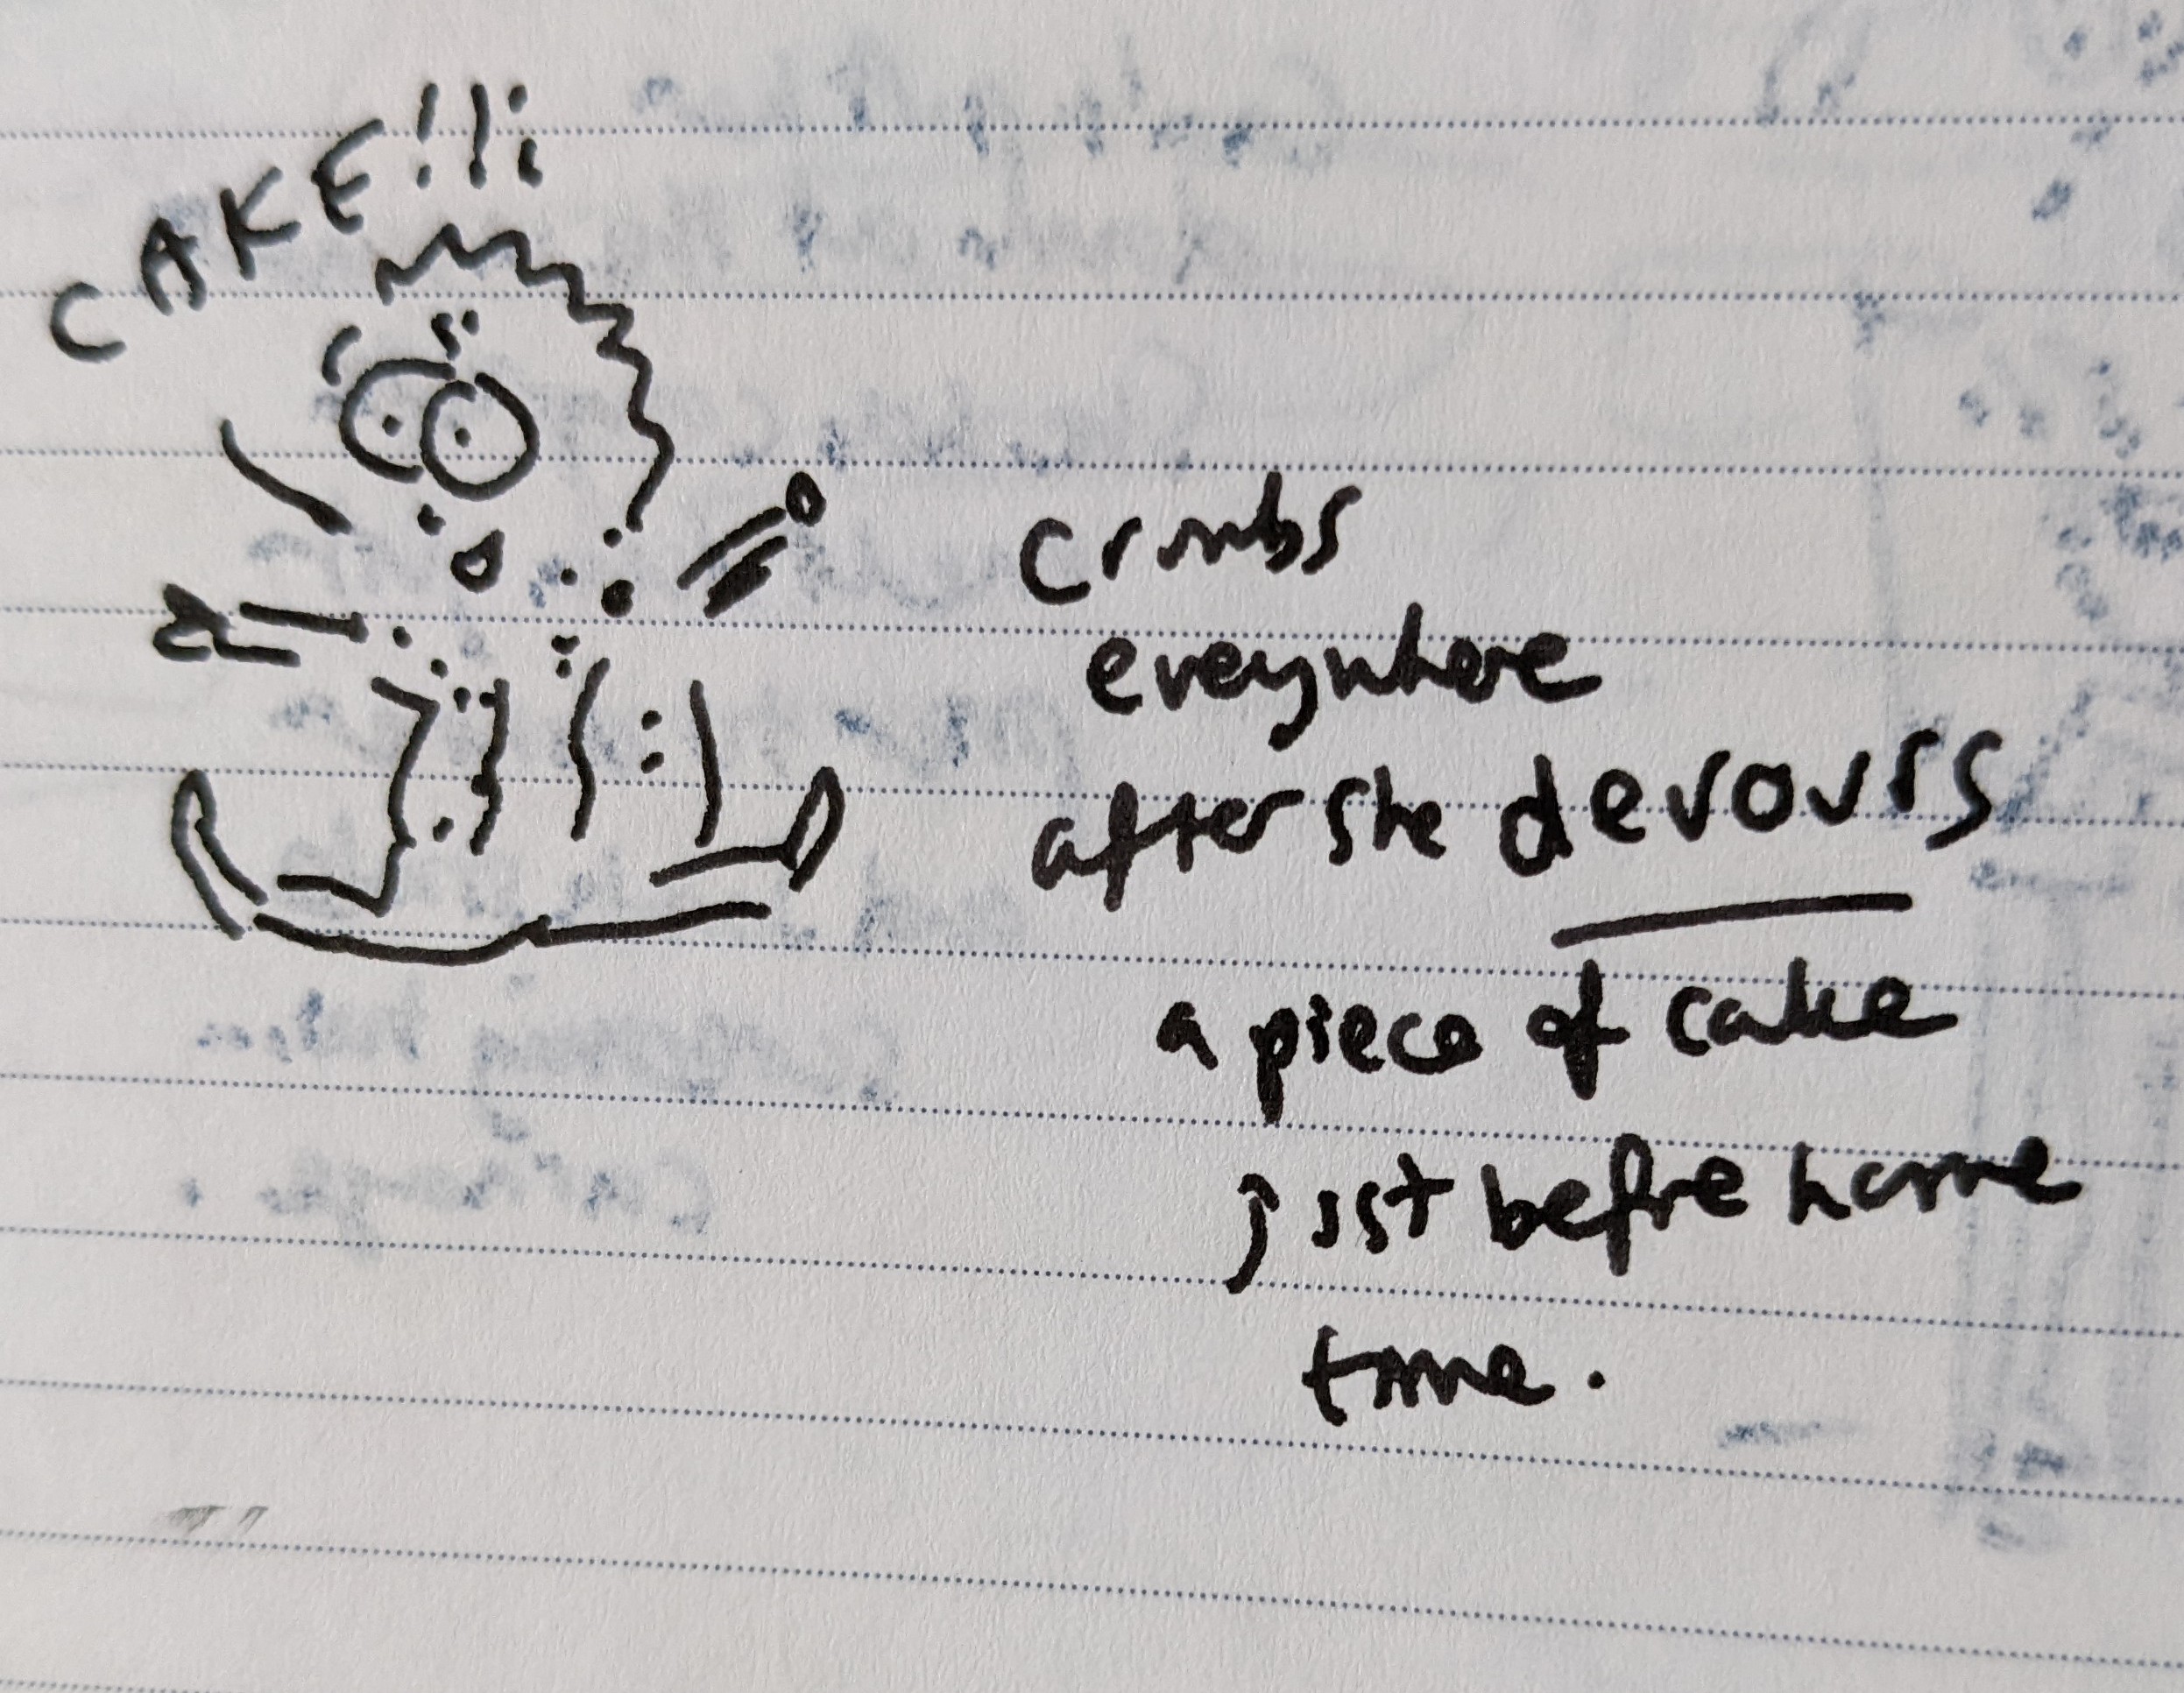 CAKE!!¡
crumbs
everywhere
after she devours
a piece of cake
just before home
time.